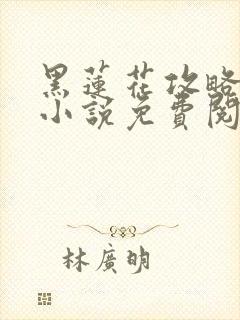 黑蓮花攻略
小說免費閱
林廣明